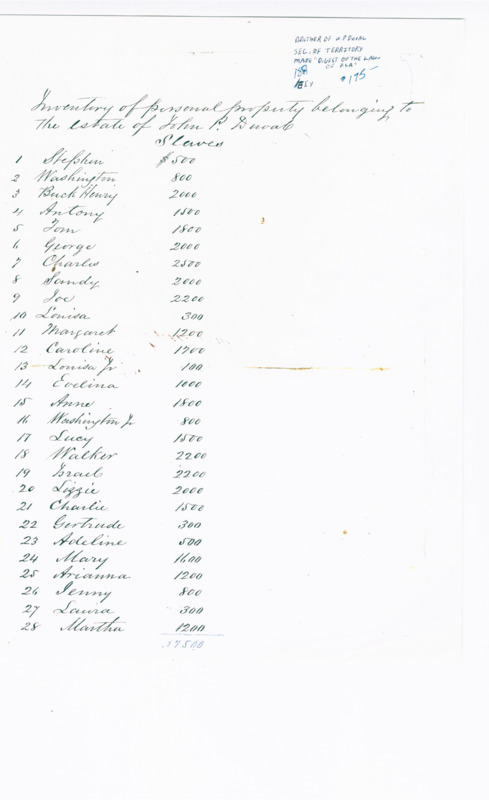 BROTHER OF W P DUVAL
SEC. OF TERRITORY
MADE "DIGEST OF THE LAWS
OF FLA"
$175
Inventory of personal property belonging to
the estate of John P. Duval
Slaves
1 Stephen $500
2 Washington 800
3 Buck Henry 2000
4 Antony 1500
5 Tom 1800
6 George 2000
7 Charles 2500
8 Sandy 2000
9 Joe 2200
10 Louisa 300
11 Margaret 1200
12 Caroline 1700
13 Louisa Jr 100
14 Evelina 1000
15 Anne 1800
16 Washington Jr 800
17 Lucy 1500
18 Walker 2200
19 Israel 2200
20 Lizzie 2000
21 Charlie 1500
22 Gertrude 300
23 Adeline 500
24 Mary 1600
25 Arianna 1200
26 Jenny 800
27 Laura 300
28 Martha 1200
37500